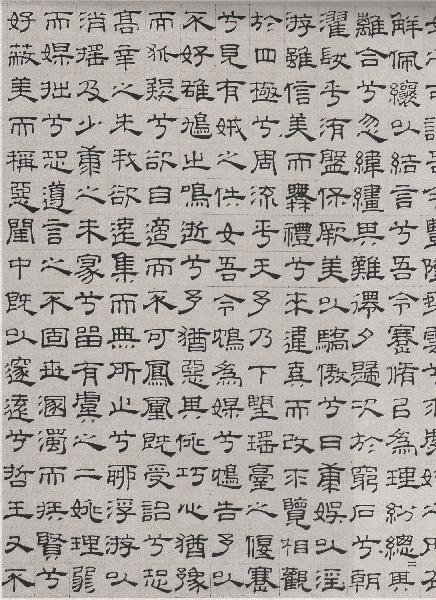 解佩纕以結言兮吾令蹇脩以為理紛總〓其
離合兮忽緯繣其難遷夕歸次於窮石兮朝
濯髮乎洧盤保厥美以驕傲兮日康娛以淫
游雖信美而無禮兮來違棄而改求覽相觀
於四極兮周流乎天予乃下望瑤臺之偃蹇
兮見有娀之佚女吾令鴆為媒兮鴆告予以
不好雄鳩之鳴逝兮予猶惡其佻巧心猶豫
而狐疑兮欲自適而不可鳳凰既受詒兮恐
高辛之先我欲遠集而無所止兮聊浮游以
消搖及少康之未家兮留有虞之二姚理弱
而媒拙兮恐導言之不固世溷濁而嫉賢兮
好蔽美而稱惡閨中既以邃遠兮哲王又不